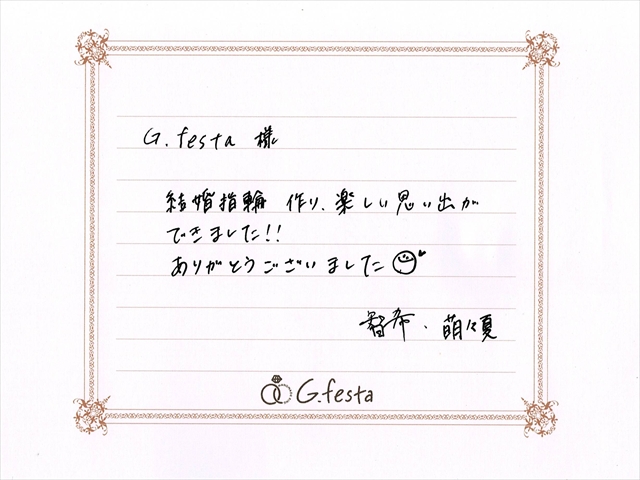 G.festa 様
結婚指輪 作り、楽しい思い出が
できました!!
ありがとうございました
智希、萌々夏
G.festa